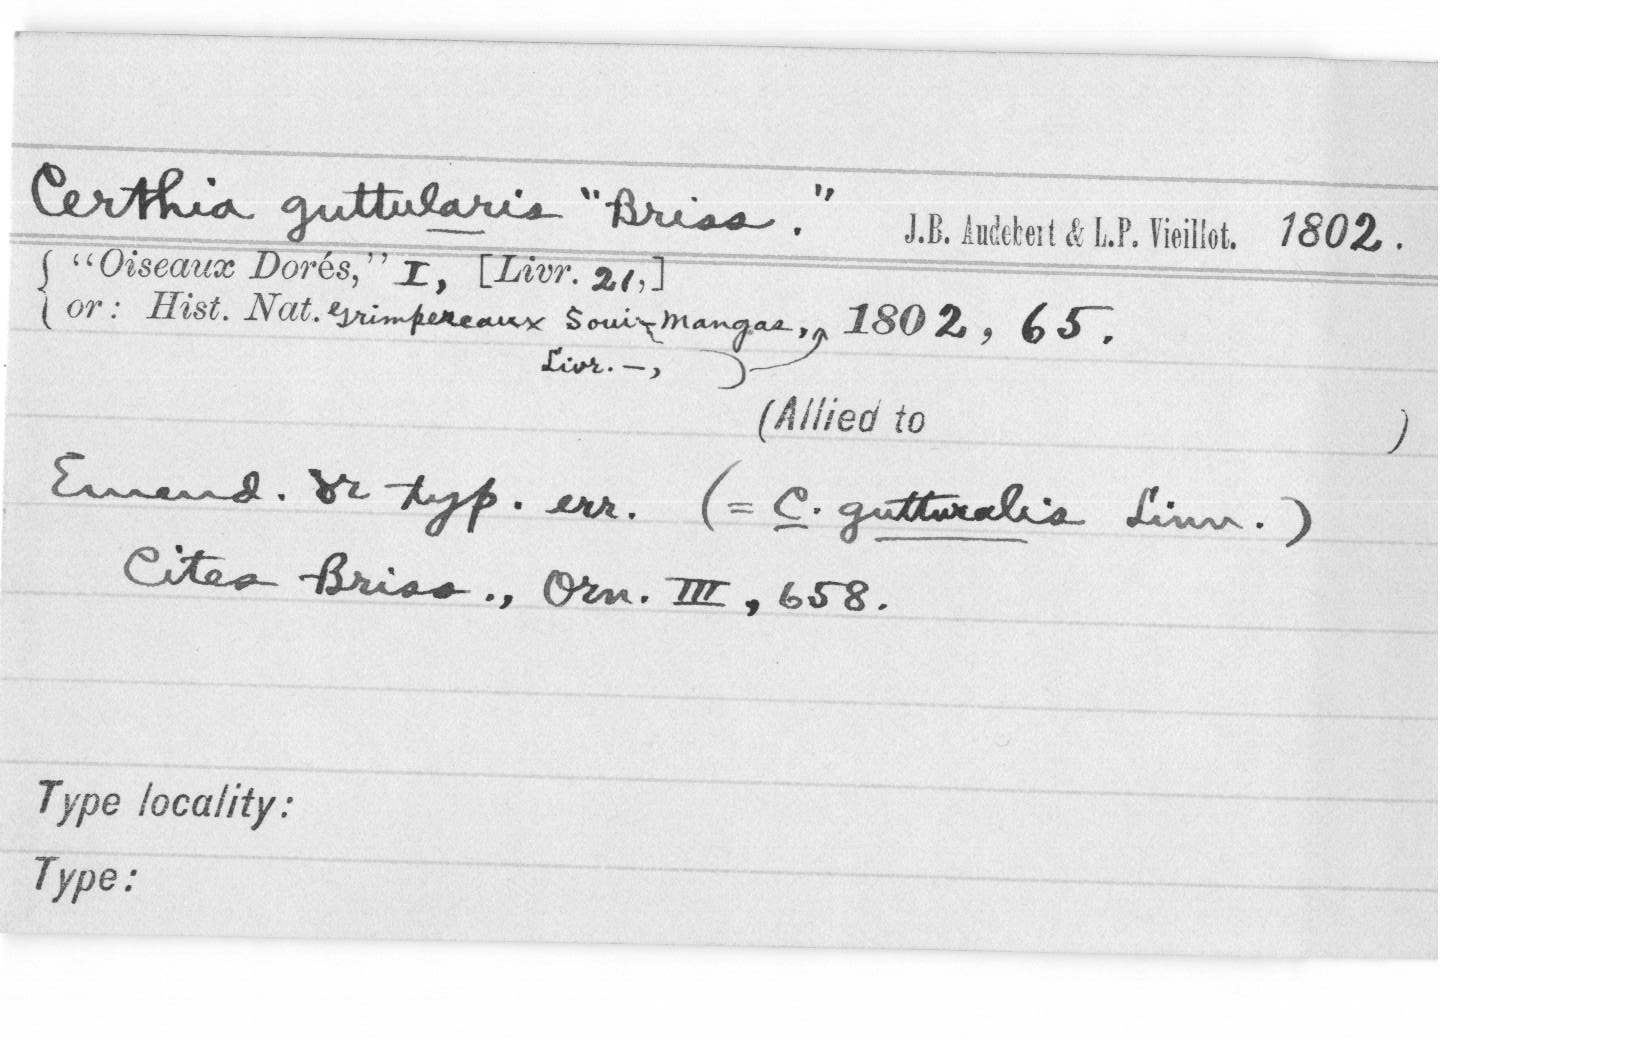 Certhia guttularis "Briss." J.B. Audebert & L.P. Vieillot. 1802.
"Oiseaux Dorés," I, [Livr. 21,]
or: Hist. Nat. Grimpereaux Soui-Mangas, 1802, 65.
Livr. —,
(Allied to )
Emend. or typ. err. (= C. gutturalis Linn.)
Cites Briss., Orn. III, 658.
Type locality:
Type: